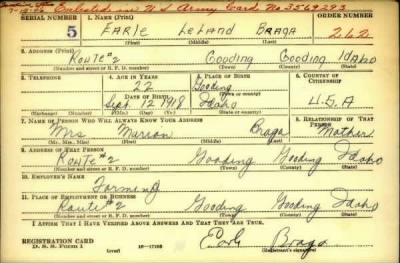 Enlisted in U S Army Card No 3569293
SERIAL NUMBER 1. NAME (Print) ORDER NUMBER
5 EARLE LeLand BRAGA
(First) (Middle) (Last)
2. ADDRESS (Print)
Route #2 Gooding Gooding Idaho
(Number and street or R. F. D. number) (Town) (County) (State)
3. TELEPHONE 4. AGE IN YEARS 5. PLACE OF BIRTH 6. COUNTRY OF CITIZENSHIP
22 Gooding
DATE OF BIRTH
Sept. 12 1918 Idaho U.S.A
(Exchange) (Number) (Mo.) (Day) (Yr.) (State or country)
7. NAME OF PERSON WHO WILL ALWAYS KNOW YOUR ADDRESS 8. RELATIONSHIP OF THAT PERSON
Mrs Marion Braga Mother
(Mr., Mrs., Miss) (First) (Middle) (Last)
9. ADDRESS OF THAT PERSON
Route #2 Gooding Gooding Idaho
(Number and street or R. F. D. number) (Town) (County) (State)
10. EMPLOYER'S NAME
Farming
11. PLACE OF EMPLOYMENT OR BUSINESS
Route #2 Gooding Gooding Idaho
(Number and street or R. F. D. number) (Town) (County) (State)
I AFFIRM THAT I HAVE VERIFIED ABOVE ANSWERS AND THAT THEY ARE TRUE.
REGISTRATION CARD
D. S. S. Form 1 (over) Earle Braga
(Registrant's signature)